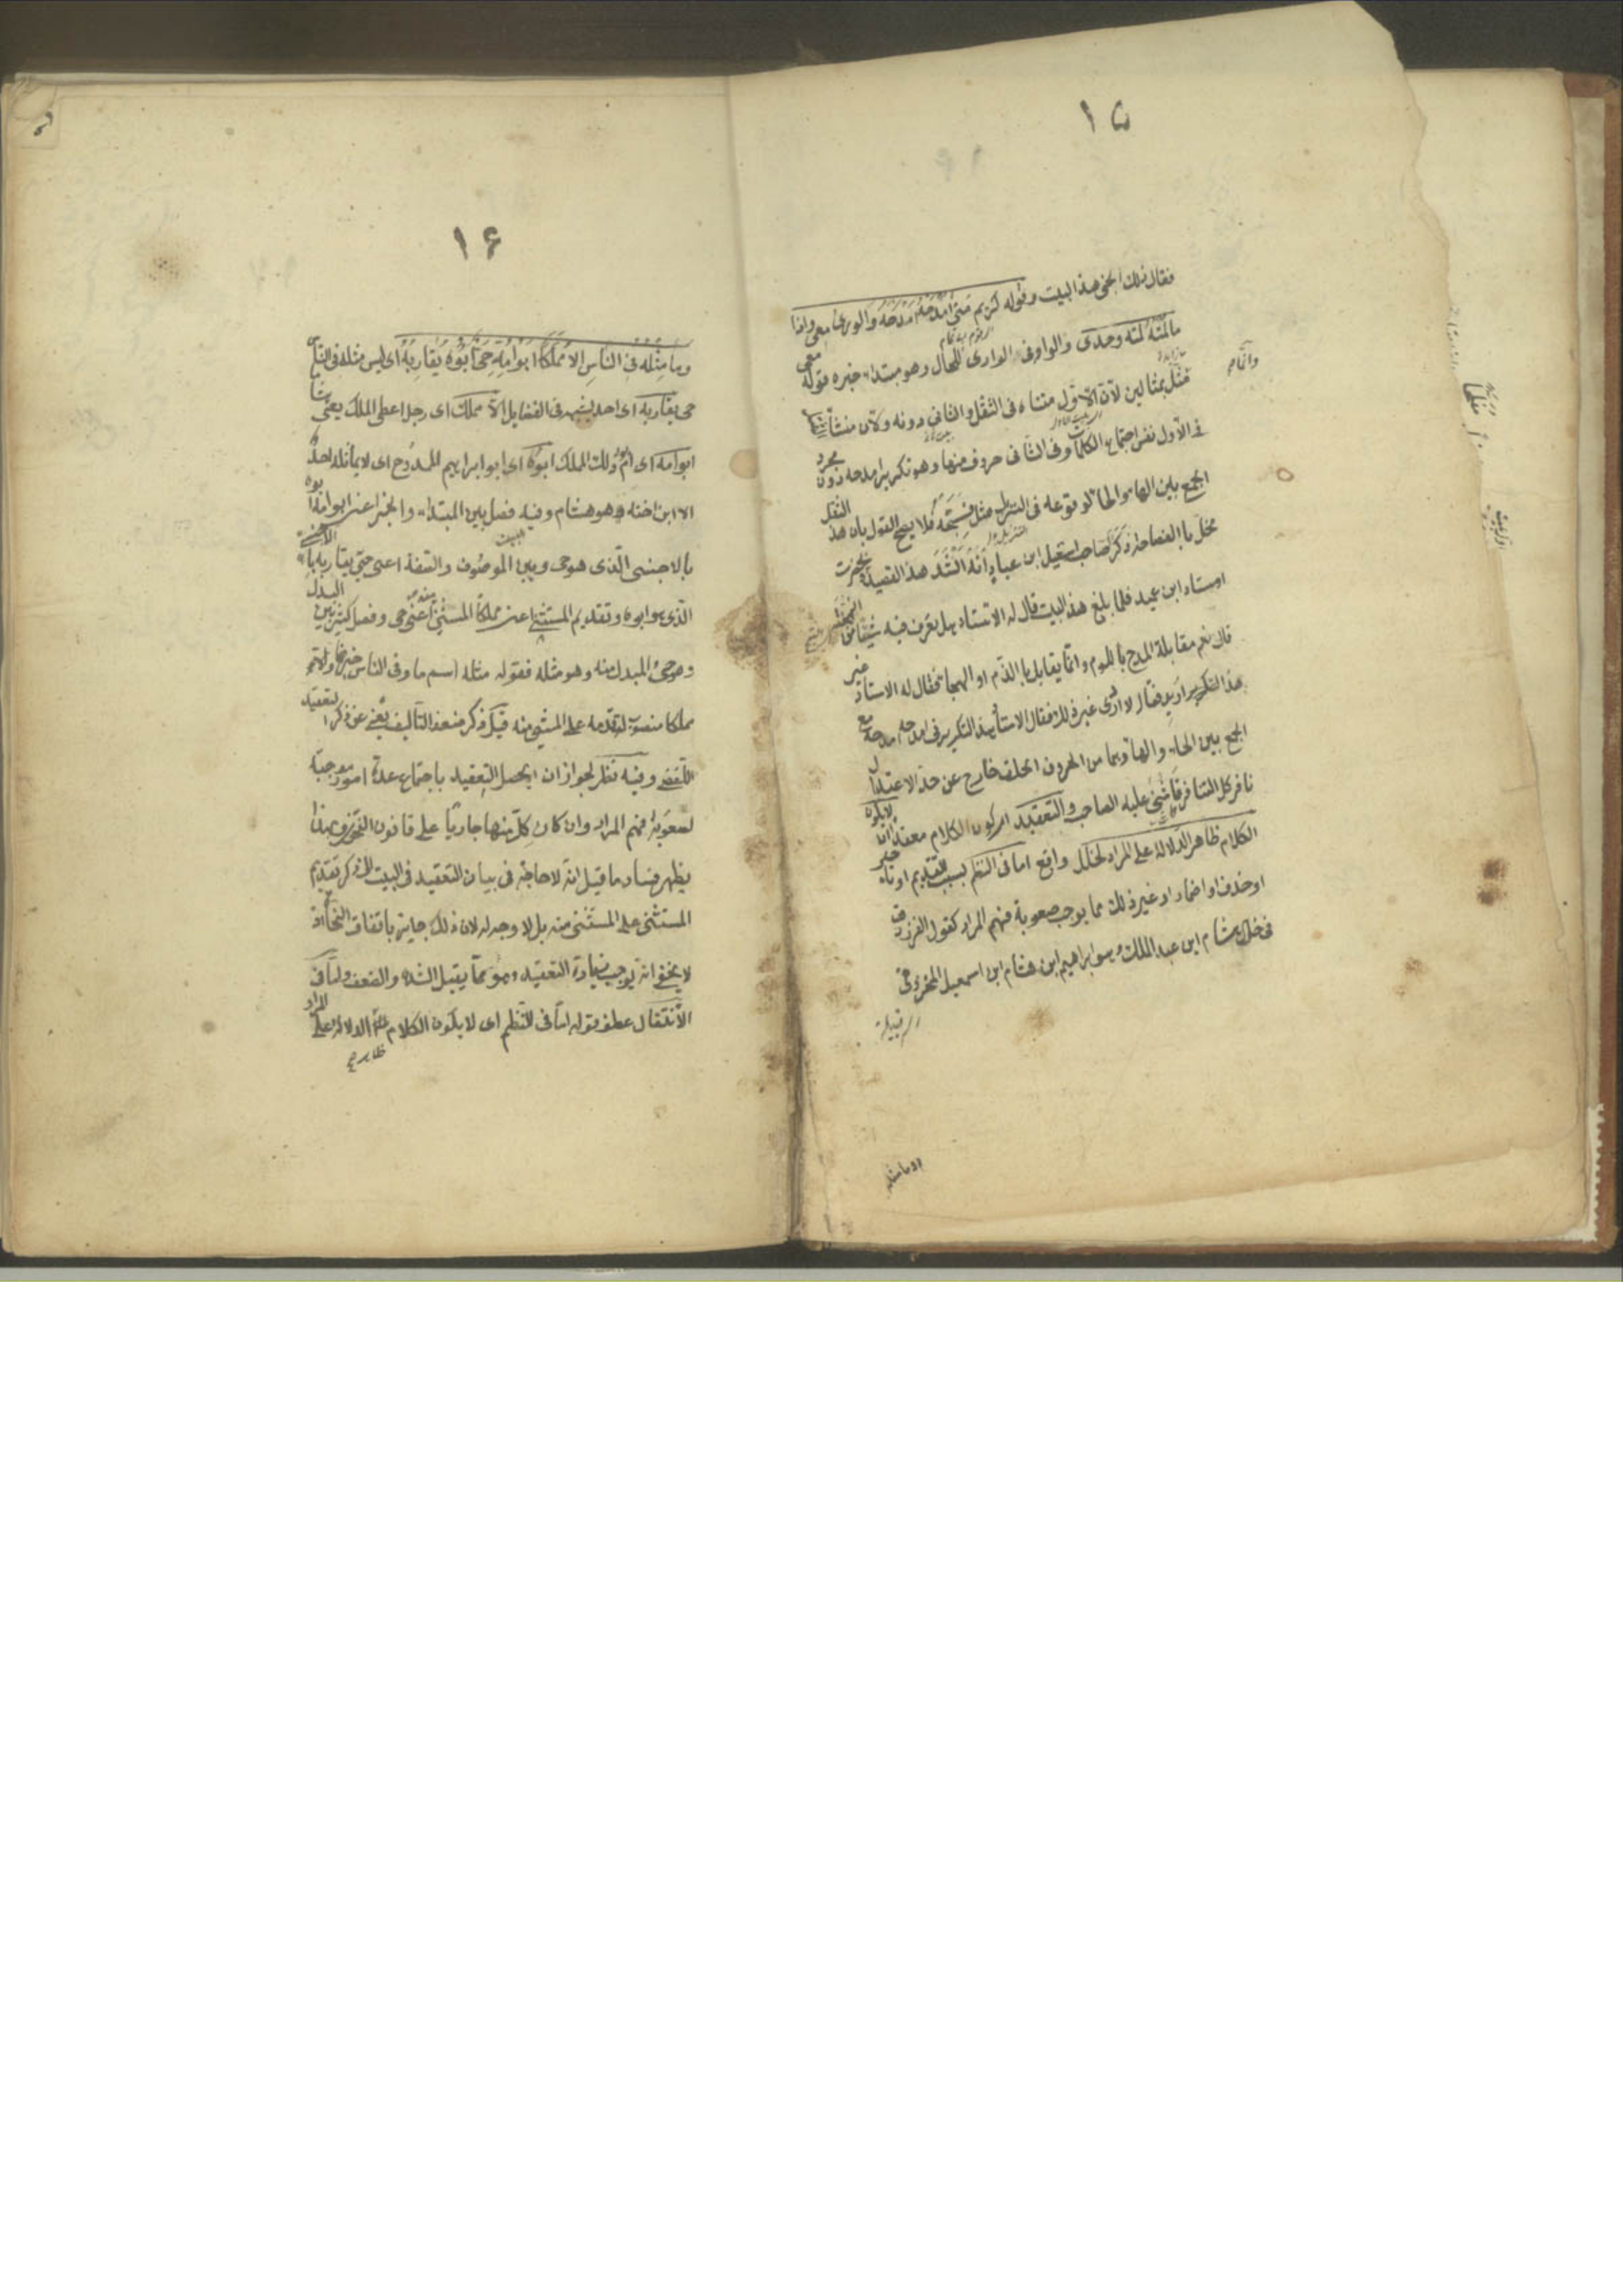 ١٥
فقال ذلك الجنى هذا البيت وقوله كريم متى امدحه امدحه والورى معى واذا
ما لمته لمته وحدى والواو فى الورى للحال وهو مبتداء خبره قوله معى
مثل بمثالين لان الاول متناه فى الثقل والثانى دونه ولان منشأ
فى الاول نفس اجتماع الكلمات وفى الثانى حروف منها وهو تكرير امدحه دون مجرد
الجمع بين الهاء والحاء لوقوعه فى التنزيل مثل فسبحه فلا يصح القول بان هذا الثقل
مخل بالفصاحة ذكر صاحب اسمعيل ابن عباد انه انشد هذا القصيدة بحضرت
اوستاد ابن عميد فلما بلغ هذا البيت قال له الاستاد هل تعرف فيه شيئا من الهجنة
قال نعم مقابلة المدح باللوم وانما يقابل بالذم او الهجا فقال له الاستاد غير
هذا اريد فقال لا ادرى غير ذلك فقال الاستاد هذا التكرير فى امدحه امدحه مع
الجمع بين الحاء والهاء وهما من الحروف الحلق خارج عن حد الاعتدال
نافر كل التنافر فاثنى عليه الصاحب والتعقيد اى كون الكلام معقدا ان لا يكون
الكلام ظاهر الدلالة على المراد لخلل واقع اما فى النظم بسبب التقديم او تاخير
او حذف او اضمار او غير ذلك مما يوجب صعوبة فهم المراد كقول الفرزدق
فى خال هشام ابن عبد الملك وهو ابراهيم ابن هشام ابن اسمعيل المخزومى
وما مثله
١۶
وما مثله فى الناس الا مملكا ابو امه حى ابوه يقاربه اى ليس مثله فى الناس
حى يقاربه اى احد يشبهه فى الفضايل الا مملك اى رجل اعطى الملك يعنى هشاما
ابو امه اى ام ذلك الملك ابوه اى ابو ابراهيم الممدوح اى لا يماثله احد
الا ابن اخته وهو هشام وفيه فصل بين المبتداء والخبر اعنى ابو امه ابوه
بالاجنبى الذى هو حى وبين الموصوف والصفة اعنى حى يقاربه بالاجنبى
الذى هو ابوه وتقديم المستثنى اعنى مملكا المستثنى منه اعنى حى وفصل كثير بين البدل
وهو حى المبدل منه وهو مثله فقوله مثله اسم ما وفى الناس خبره والا
مملكا منصوب لتقدمه على المستثنى منه قيل ذكر ضعف التأليف يغنى عن ذكر التعقيد
اللفظى وفيه نظر لجواز ان يحصل التعقيد باجتماع عدة امور موجبة
لصعوبة فهم المراد وان كان كل منها جاريا على قانون النحو وبهذا
يظهر فساد ما قيل انه لا حاجة فى بيان التعقيد فى البيت الى ذكر تقديم
المستثنى على المستثنى منه بل لا وجه له لان ذلك جايز باتفاق النحاة اذ
لا يخفى انه يوجب زيادة التعقيد وهو مما يقبل الشدة والضعف واما فى
الانتقال عطف بقوله اما فى النظم اى لا يكون الكلام ظاهر الدلالة على المراد